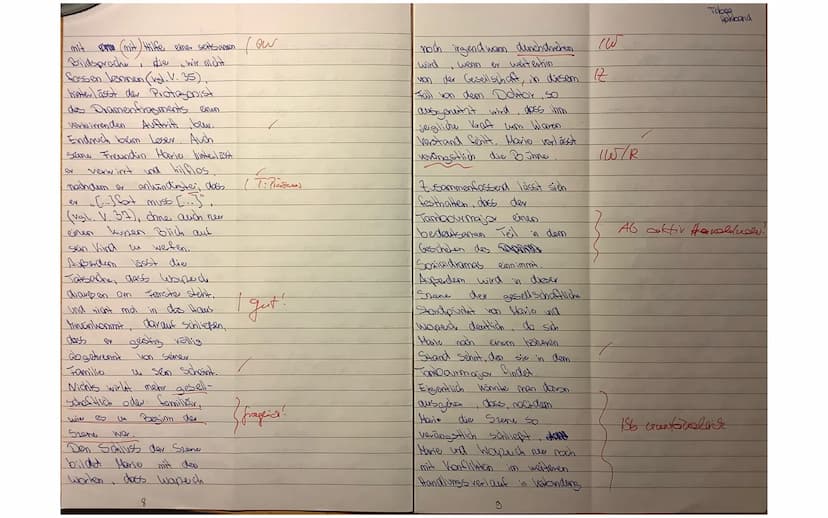 mit (mit) Hilfe einer seltsamen
Bildsprache, die wir nicht
fassen können (vgl. V. 35),
hinterlässt der Protagonist
des Dramenfragments einen
verwirrenden Auftritt bzw.
Eindruck beim Leser. Auch
seine Freundin Marie hinterlässt
er verwirrt und hilflos,
nachdem er ankündigte, dass
er „[...] fort muss [...]“,
(vgl. V. 37), ohne auch nur
einen kurzen Blick auf
sein Kind zu werfen.
Außerdem lässt die
Tatsache, dass Woyzeck
draußen am Fenster steht,
und nicht mal in das Haus
hineinkommt, darauf schließen,
dass er geistig völlig
abgetrennt von seiner
Familie zu sein scheint.
Nichts wirkt mehr gesell-
schaftlich oder familiär,
wie es zu Beginn der
Szene war.
Den Schluss der Szene
bildet Marie mit den
Worten, dass Woyzeck
gut!
fraglich!
8
noch irgendwann durchdrehen
wird, wenn er weiterhin
von der Gesellschaft, in diesem
Fall von dem Doktor, so
ausgenutzt wird, dass ihm
jegliche Kraft zum Wahren
Verstand fehlt. Marie verlässt
verängstlich die Bühne.
Zusammenfassend lässt sich
festhalten, dass der
Tambourmajor einen
bedeutsamen Teil in dem
Geschehen des
Sozialdramas einnimmt.
Außerdem wird in dieser
Szene der gesellschaftliche
Standpunkt von Marie und
Woyzeck deutlich, da sich
Marie nach einem höheren
Stand sehnt, den sie in dem
Tambourmajor findet.
Eigentlich könnte man davon
ausgehen, dass, nachdem
Marie die Szene so
verängstlich schließt,
Marie und Woyzeck nur noch
mit Konflikten im weiteren
Handlungsverlauf in Verbindung
W
Z
W/R
9